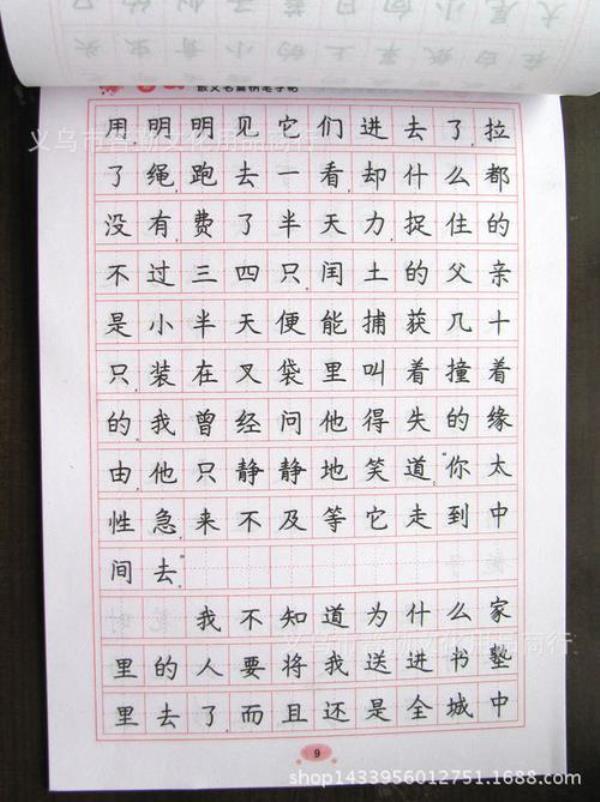 散文名篇钢笔字帖
用。明明见它们进去了,拉
了绳,跑去一看,却什么都
没有,费了半天力,捉住的
不过三四只。闰土的父亲
是小半天便能捕获几十
只,装在叉袋里叫着撞着
的。我曾经问他得失的缘
由,他只静静地笑道:“你太
性急,来不及等它走到中
间去。”
我不知道为什么家
里的人要将我送进书塾
里去了,而且还是全城中
9
shop1433956012751.1688.com